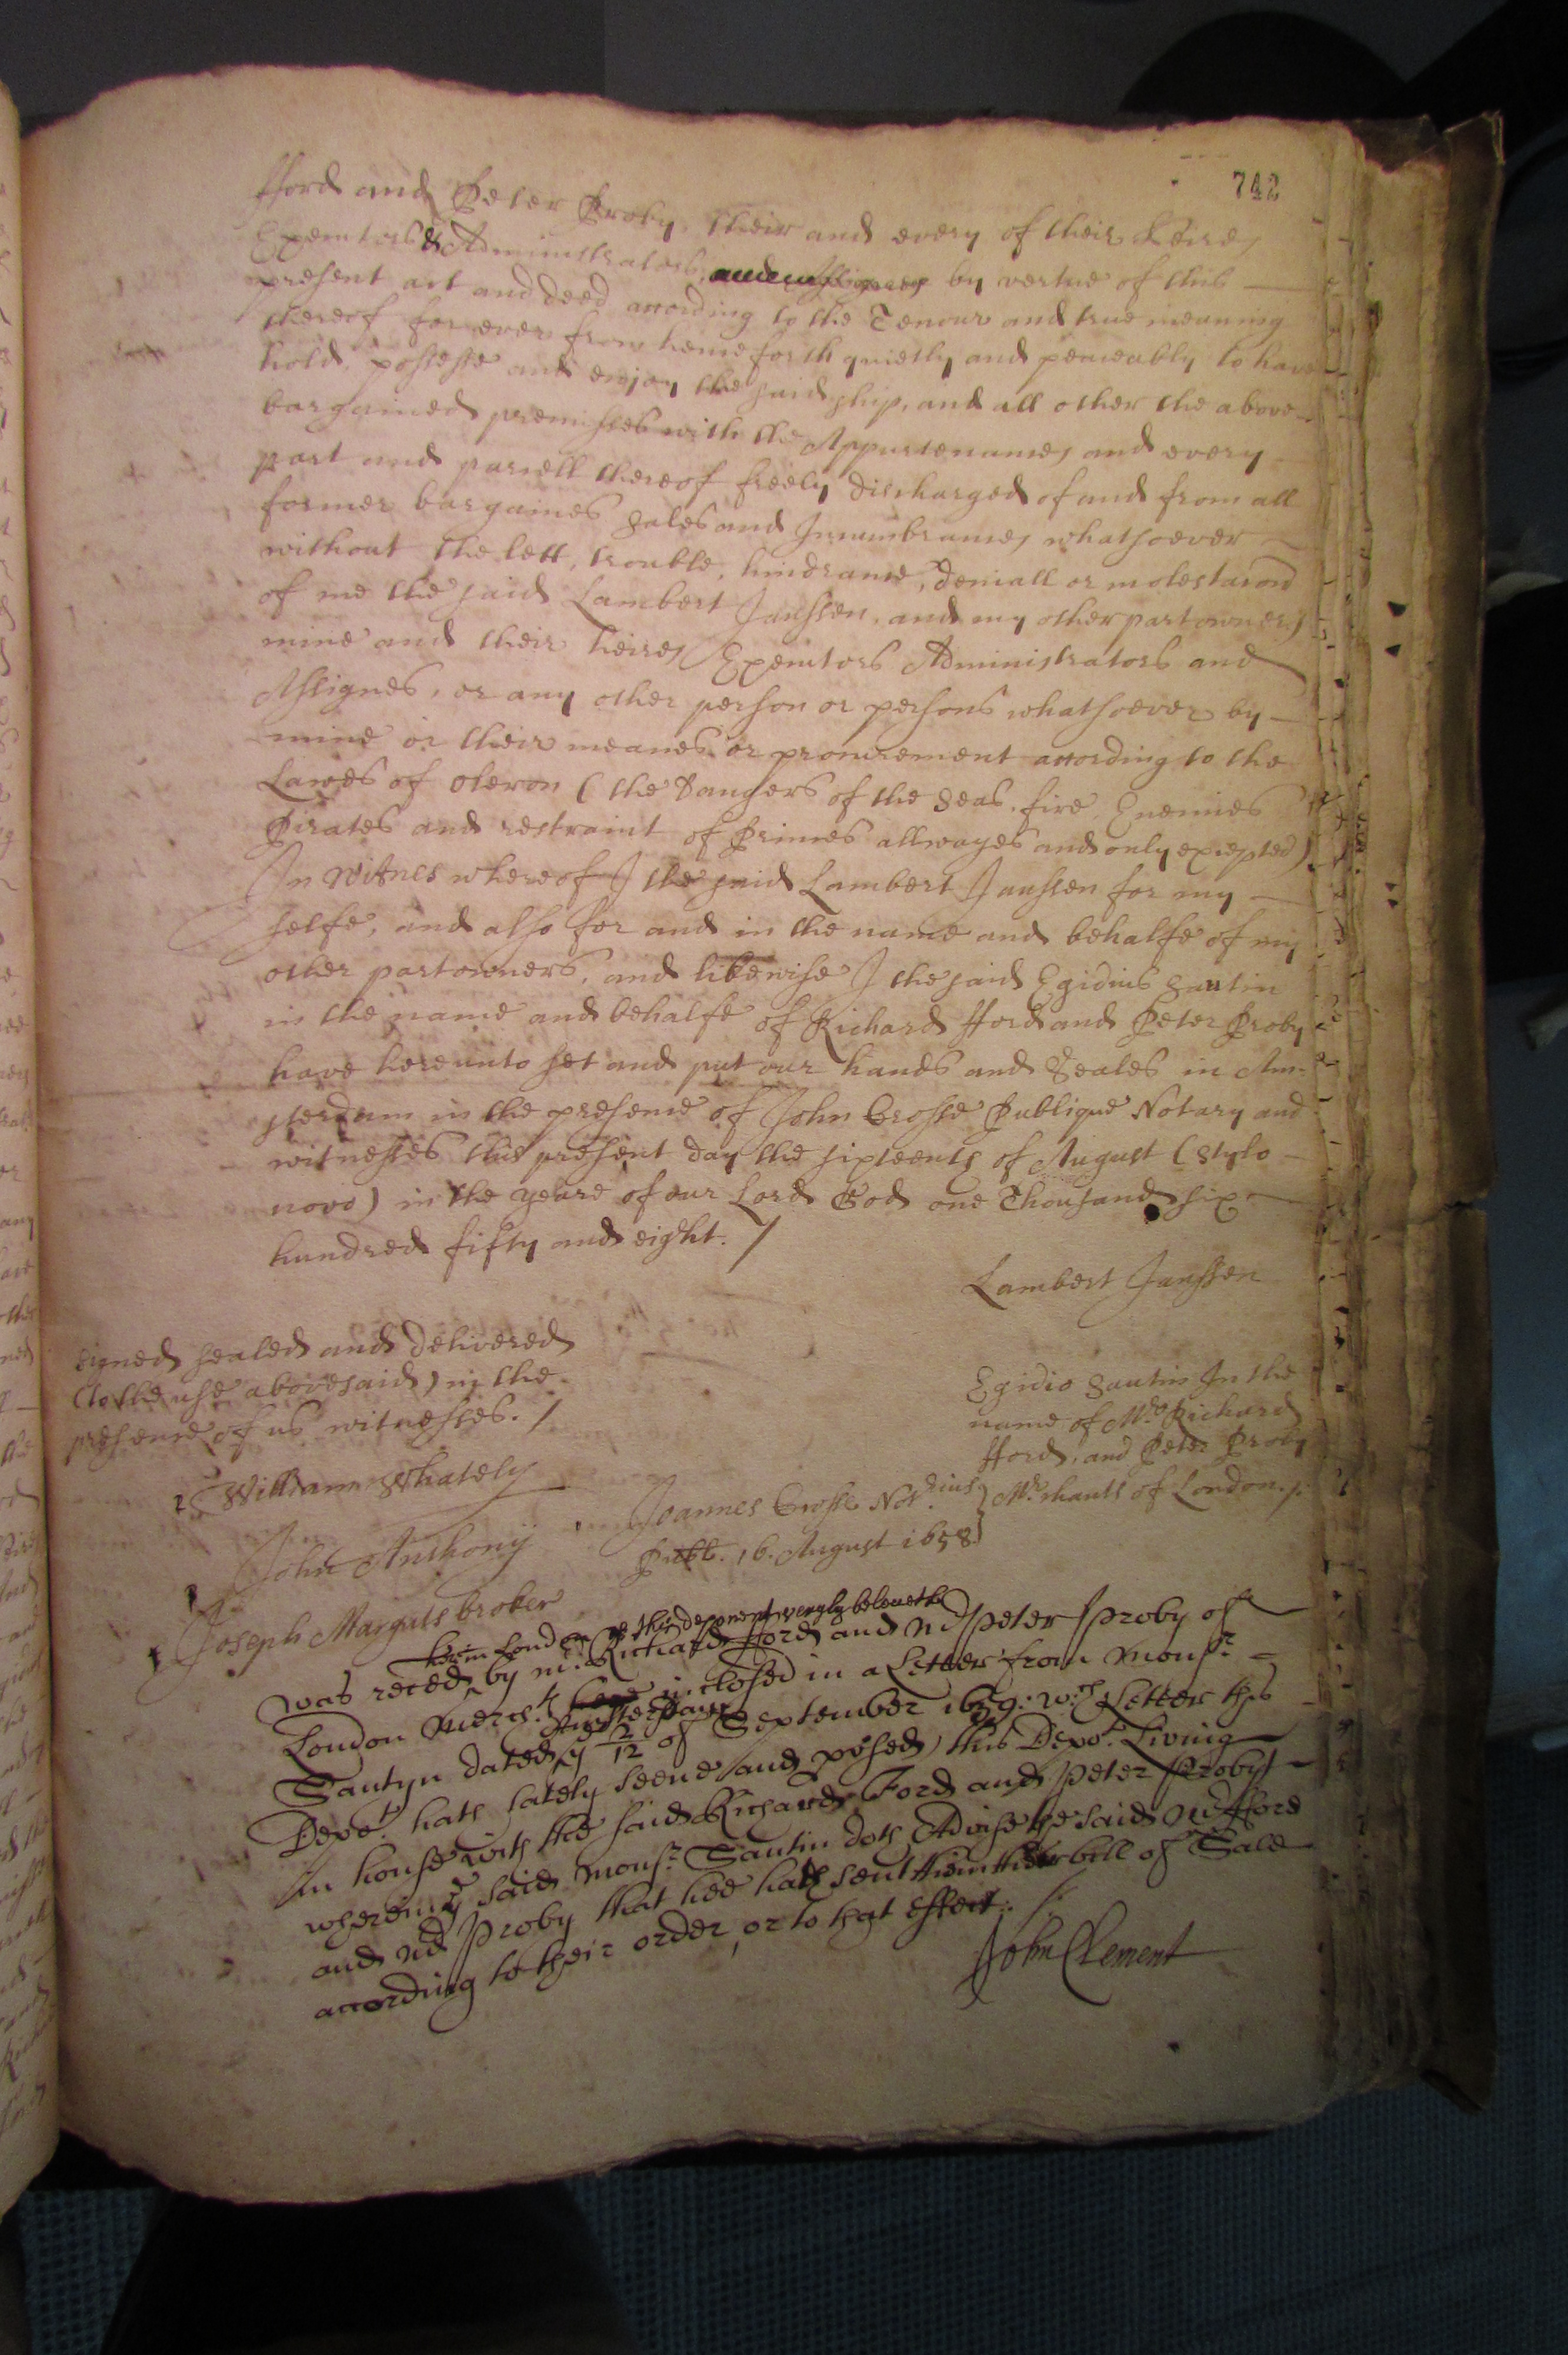 742
fford and Peter Proby, their and every of their heires
Executors & Administrators, by vertue of this
present act and deed according to the Tenour and true meaning
thereof for ever from henceforth quietly and peaceably to have
hold, possesse and enjoy the said ship, and all other the above
bargained premisses with the Appurtenances and every
part and parcell thereof freely discharged of and from all
former bargaines sales and Incumbrances whatsoever
without the lett, trouble, hindrance, deniall or molestacion
of me the said Lambert Janssen, and my other partowners
mine and their heires Executors Administrators and
Assignes, or any other person or persons whatsoever by
mine or their meanes or procurement according to the
Lawes of Oleron (the dangers of the seas, fire, Enemies
Pirates and restraint of Princes allwayes and only excepted)
In Witnes whereof I the said Lambert Janssen for my
selfe, and also for and in the name and behalfe of my
other partowners, and likewise I the said Egidius Sautin
in the name and behalfe of Richard fford and Peter Proby
have hereunto set and put our hands and Seales in Am-
sterdam in the presence of John Crosse Publique Notary and
witnesses this present day the sixteenth of August (Stylo
novo) in the yeare of our Lord God one Thousand six
hundred fifty and eight. /
Lambert Janssen
Signed sealed and delivered
(to the use abovesaid) in the
presence of us witnesses. /
Egidio Sautin In the
name of Mrs Richard
fford, and Peter Proby
Mrchants of London./.
William Whately
John Anthonij
Joannes Crosse Notrius
Publ. 16. August 1658
Joseph Marguts broker
here in London as this deponent veryly beleeveth
was receed by mr. Richard fford and Mr Peter Proby of
London Merch.ts inclosed in a Letter from monsr
Amsterdam
Sautyn dated ye 2/12 of September 1659: wch Letter this
Depot. hath lately seene and p'sed, this Depot. Living
In house with the said Richard Ford and Peter Proby
wherein ye said monsr. Sautin doth Advise the said Mr fford
and Mr Proby that hee hath sent them their bill of Sale
according to their order, or to that effect ./.
John Clement